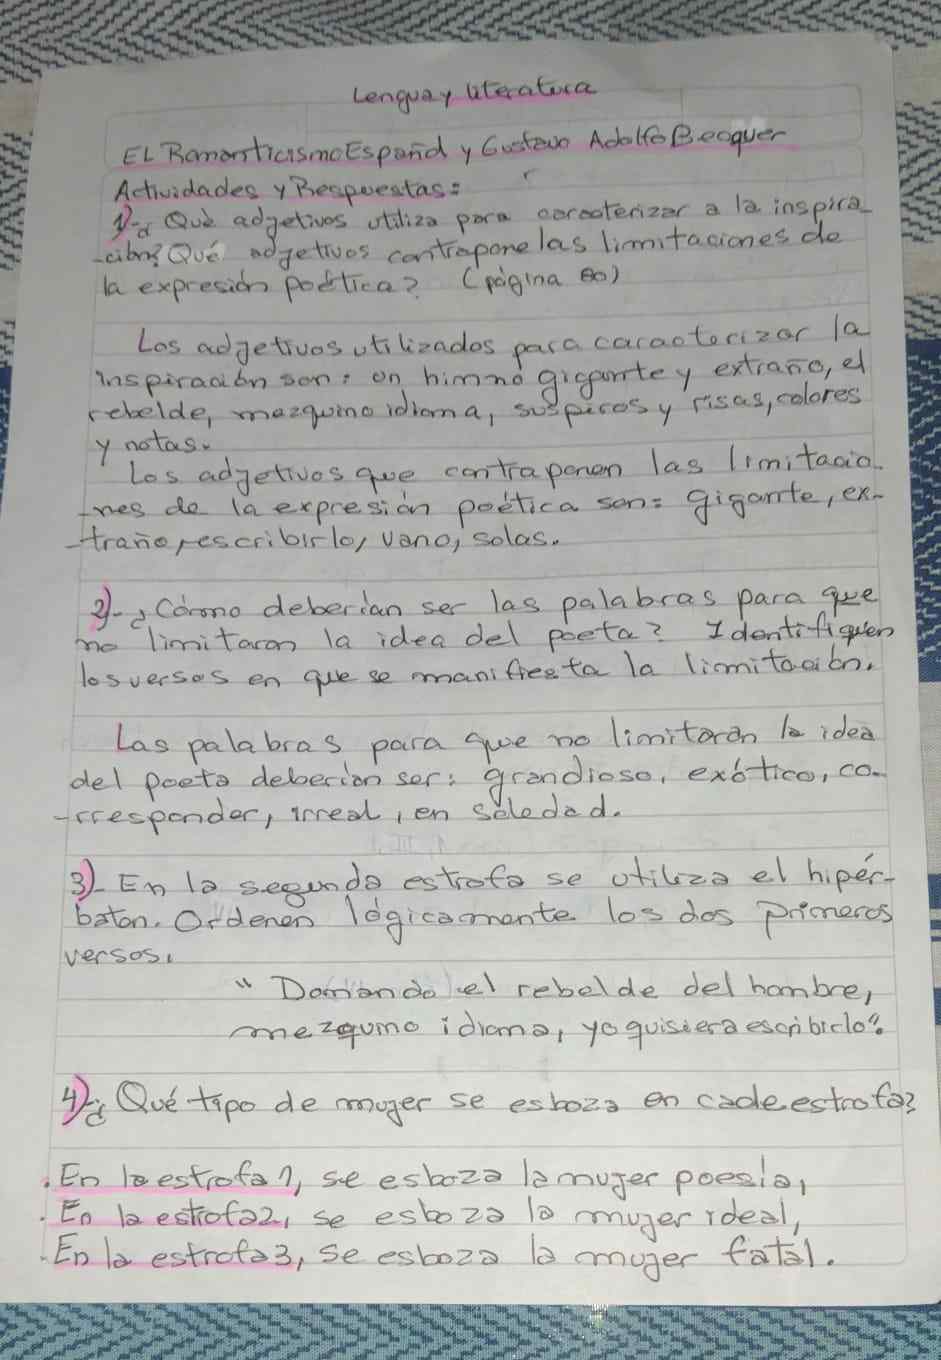 Lengua y literatura
EL Romanticismo Español y Gustavo Adolfo Becquer
Actividades y Respuestas:
1)-¿ Qué adjetivos utiliza para caracterizar a la inspira-
-ción? Qué adjetivos contrapone las limitaciones de
la expresión poética? (página 80)
Los adjetivos utilizados para caracterizar la
inspiración son: un himno gigante y extraño, el
rebelde, mezquino idioma, suspiros y risas, colores
y notas.
Los adjetivos que contraponen las limitacio-
-nes de la expresión poética son: gigante, ex-
-traño, escribirlo, vano, solas.
2)-¿Cómo deberían ser las palabras para que
no limitaran la idea del poeta? Identifiquen
los versos en que se manifiesta la limitación.
Las palabras para que no limitaran la idea
del poeta deberían ser: grandioso, exótico, co-
-rresponder, irreal, en soledad.
3)- En la segunda estrofa se utiliza el hipér-
baton. Ordenen lógicamente los dos primeros
versos.
" Domando el rebelde del hombre,
mezquino idioma, yo quisiera escribirlo"
4)-¿ Qué tipo de mujer se esboza en cada estrofa?
. En la estrofa 1, se esboza la mujer poesía,
. En la estrofa 2, se esboza la mujer ideal,
. En la estrofa 3, se esboza la mujer fatal.